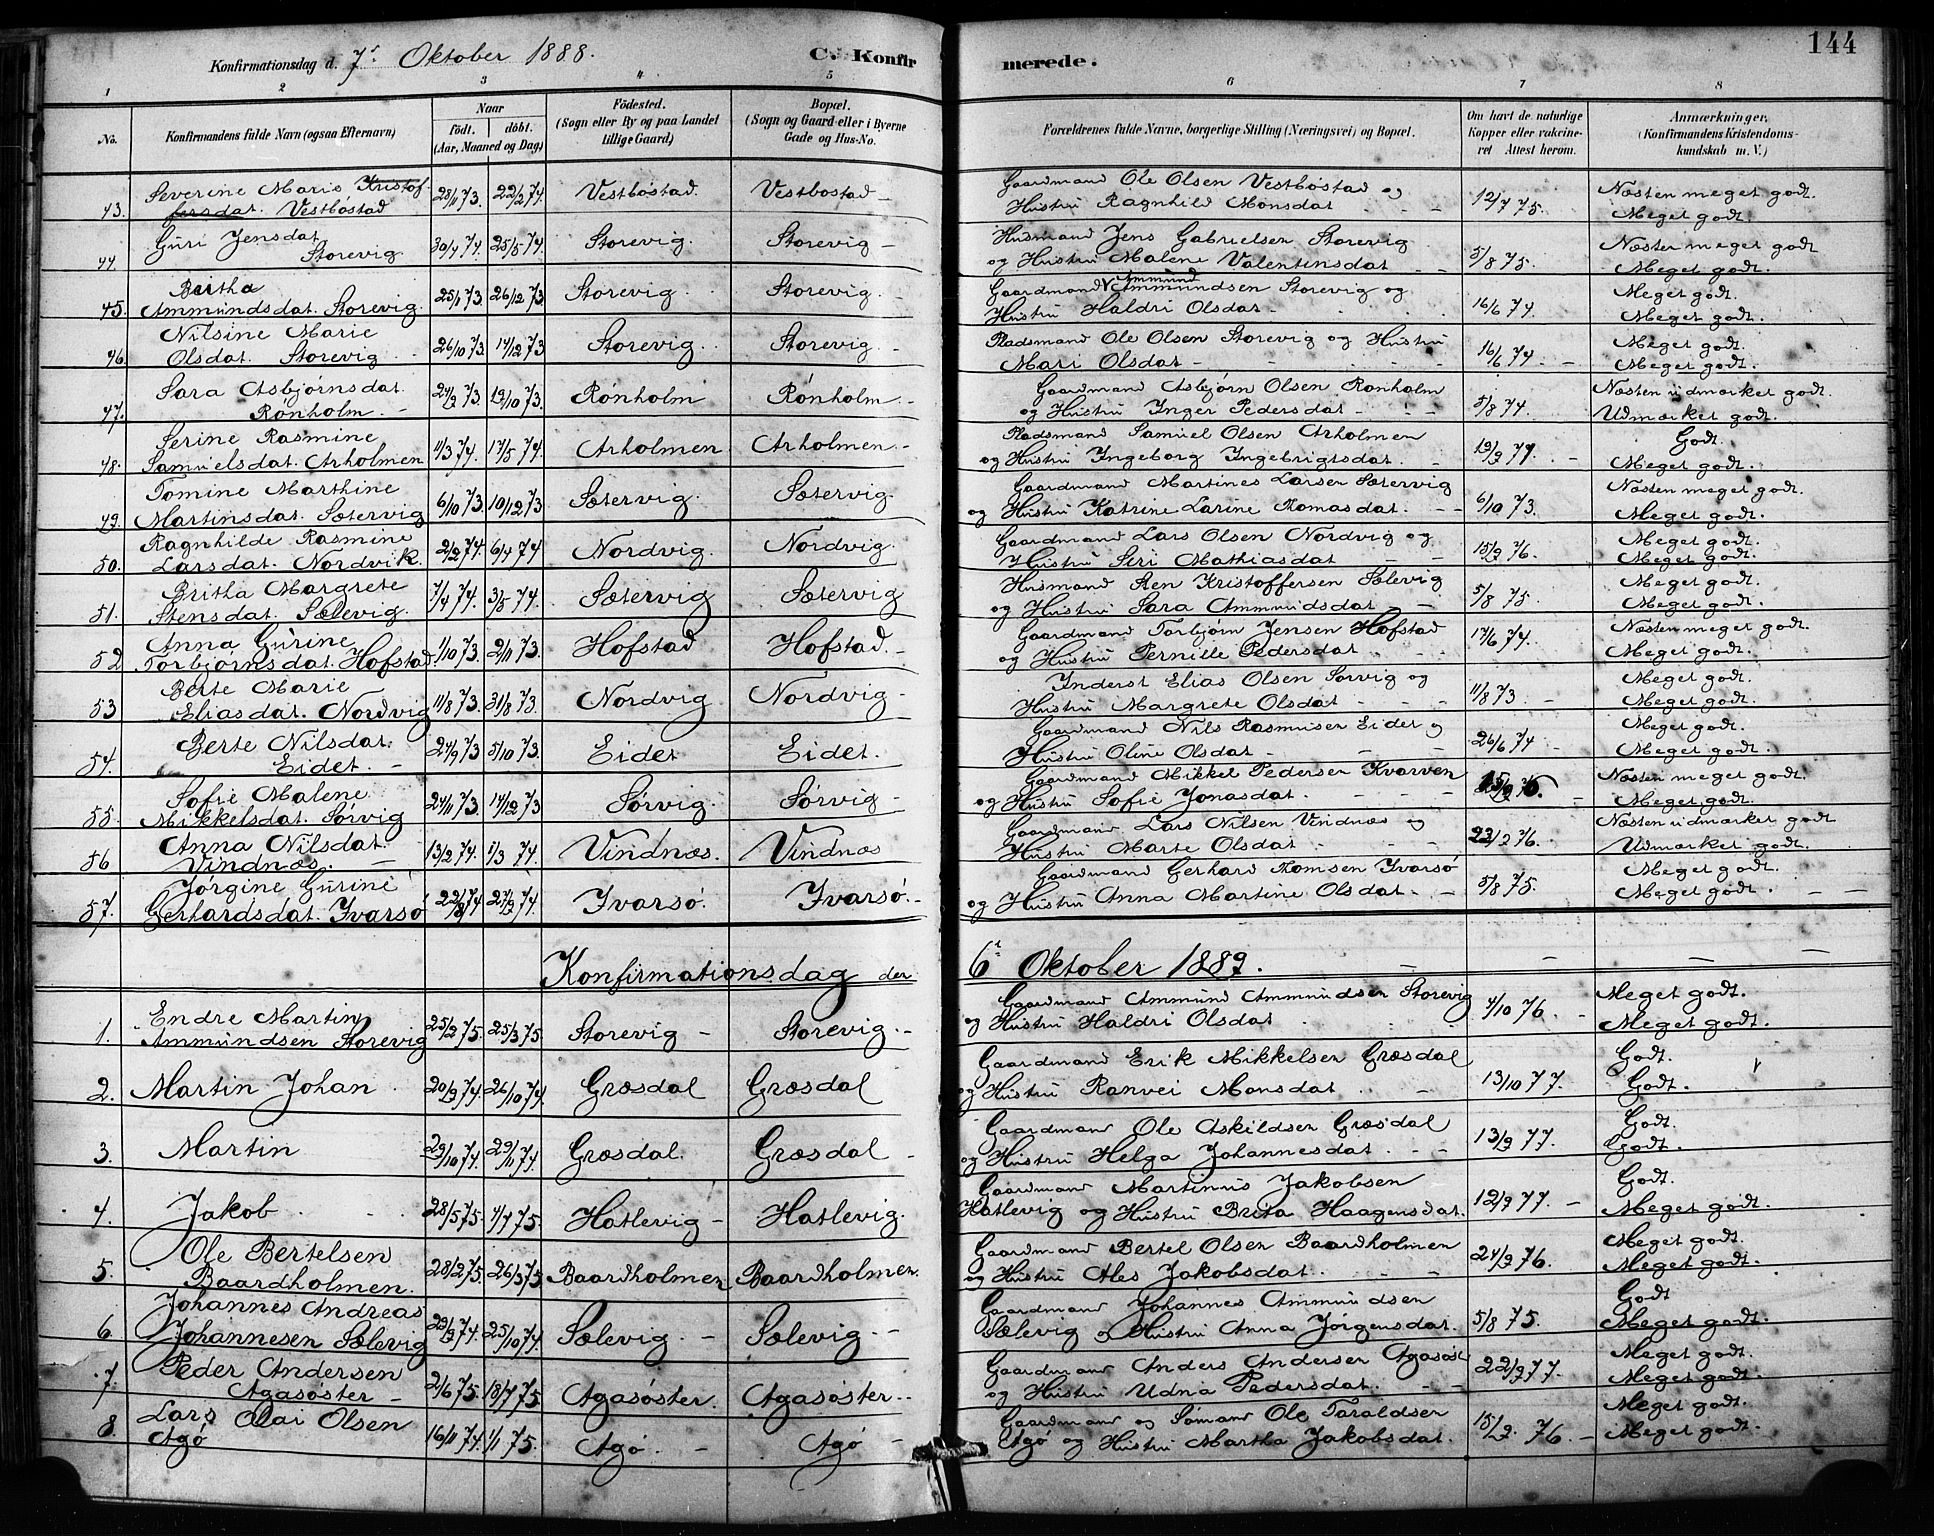 144
Konfirmationsdag d. 7de Oktober 1888. C. Konfirmerede.
1 2 3 4 5 6 7 8
No. Konfirmandens fulde Navn (ogsaa Efternavn) Naar födt. döbt. (Aar, Maaned og Dag) Födested. (Sogn eller By og paa Landet tillige Gaard) Bopæl. (Sogn og Gaard eller i Byerne Gade og Hus-No. Forældrenes fulde Navne, borgerlige Stilling (Næringsvei) og Bopæl. Om havt de naturlige Kopper eller vakcineret Attest herom. Anmærkninger, (Konfirmandens Kristendomskundskab m. V.)
43. Severine Marie Kristoffersdat. Vestbøstad 28/11 73. 22/2 74. Vestbøstad. Vestbostad Gaardmand Ole Olsen Vestbøstad og Hustru Ragnhild Monsdat 12/7 75. Næsten meget godt. Meget godt.
44. Guri Jensdat. Storevig 30/4 74. 25/5 74. Storevig. Storevig Husmand Jens Gabrielsen Storevig og Hustru Malene Valentinsdat 5/8 75. Næsten meget godt Meget godt.
45. Bertha Ammundsdat. Storevig. 25/11 73. 26/12 73 Storevig. Storevig. Gaardmand Ammund Ammundsen Storevig og Hustru Haldri Olsdat 16/6 74. Meget godt. Meget godt.
46. Nilsine Marie Olsdat. Storevig 26/10 73. 14/12 73 Storevig. Storevig. Pladsmand Ole Olsen Storevig og Hustru Mari Olsdat 16/6 74. Meget godt. Meget godt.
47. Sara Asbjørnsdat. Rønholm. 24/9 73. 19/10 73. Rønholm Rønholm. Gaardmand Asbjørn Olsen Rønholm og Hustru Inger Pedersdat 5/8 74. Næsten udmærket godt. Udmærket godt.
48. Serine Rasmine Samuelsdat. Arholmen 11/3 74. 17/5 74. Arholmen Arholmen Pladsmand Samuel Olsen Arholmen og Hustru Ingeborg Ingebrigtsdat. Godt. Meget godt.
49. Tomine Marthine Martinsdat. Sætervig 6/10 73. 10/12 73 Sætervig. Sætervig. Gaardmand Martines Larsen Sætervig og Hustru Katrine Larine Tomasdat. 6/10 73. Næsten meget godt. Meget godt.
50. Ragnhilde Rasmine Larsdat. Nordvik. 2/2 74. 6/4 74 Nordvig. Nordvig. Gaardmand Lars Olsen Nordvig og Hustru Siri Mathiasdat 15/9 76. Meget godt. Meget godt.
51. Britha Margrete Stensdat. Sælevig. 7/4 74. 3/5 74. Sætervig Sætervig Husmand Sten Kristoffersen Sælevig og Hustru Sara Ammundsdat 5/8 75. Meget godt. Meget godt.
52 Anna Gurine Torbjørnsdat. Hofstad 1/10 73. 2/11 73. Hofstad Hofstad. Gaardmand Torbjørn Jensen Hofstad og Hustru Pernille Pedersdat 17/6 74. Næsten meget godt. Meget godt.
53 Berte Marie Eliasdat. Nordvig 11/8 73. 31/8 73. Nordvig. Nordvig Inderst Elias Olsen Sørvig og Hustru Margrete Olsdat 11/8 73 Meget godt. Meget godt.
54. Berte Nilsdat. Eidet. 24/9 73 5/10 73. Eidet Eidet. Gaardmand Nils Rasmusen Eidet og Hustru Oline Olsdat 26/6 74 Meget godt. Meget godt.
55. Sofie Malene Mikkelsdat. Sørvig 24/11 73 14/12 73 Sørvig. Sørvig Gaardmand Mikkel Pedersen Kvarven og Hustru Sofie Jonasdat. 15/9 76. Næsten meget godt Meget godt.
56 Anna Nilsdat. Vindnæs. 13/2 74. 1/3 74. Vindnæs. Vindnæs Gaardmand Lars Nilsen Vindnæs og Hustru Marte Olsdat 23/2 76. Næsten udmærket godt Udmærket godt.
57. Jørgine Gurine Gerhardsdat. Ivarsø Ivarsø. Ivarsø. Gaardmand Gerhard Thomsen Ivarsø og Hustru Anna Martine Olsdat 5/8 75. Meget godt. Meget godt.
Konfirmationsdag den 6te Oktober 1889.
1. Endre Martin Ammundsen Storevig 25/2 75. 25/3 75. Storevig Storevig. Gaardmand Ammund Ammundsen Storevig og Hustru Haldri Olsdat 4/10 76. Meget godt. Meget godt.
2. Martin Johan 20/9 74. 26/10 74. Græsdal Græsdal Gaardmand Erik Mikkelsen Græsdal og Hustru Ranvei Monsdat 13/10 77. Godt. Godt.
3. Martin 29/10 74. 29/11 74. Græsdal. Græsdal Gaardmand Ole Askildsen Græsdal og Hustru Helga Johannesdat. 13/9 77. Godt. Godt.
4. Jakob 28/5 75. 4/7 75. Hatlevig Hatlevig. Gaardmand Martinus Jakobsen Hatlevig og Hustru Brita Haagensdat. 12/9 77. Godt. Meget godt.
5. Ole Bertelsen Baardholmen. 28/2 75. 26/3 75 Baardholmen Baardholmen. Gaardmand Bertel Olsen Baardholmen og Hustru Ales Jakobsdat. 24/9 76. Meget godt. Meget godt.
6. Johannes Andreas Johannesen Sælevig 29/9 74. 25/10 74. Sælevig. Sælevig Gaardmand Johannes Ammundsen Sælevig og Hustru Anna Jørgensdat. 5/8 75. Godt Meget godt.
7. Peder Andersen Agasøster 2/6 75. 18/7 75. Agasøster. Agasøster. Gaardmand Anders Andersen Agasøst og Hustru Udna Pedersdat. 22/9 77. Meget godt. Meget godt.
8. Lars Olai Olsen Agø 16/11 74. 1/1 75. Agø. Agø Gaardmand og Sømand Ole Taraldsen Agø og Hustru Martha Jakobsdat. 15/9 76. Meget godt. Meget godt.